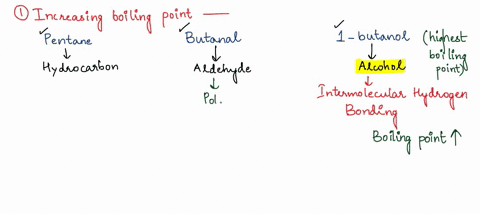 ① Increasing boiling point —
Pentane
Butanal
1-butanol (highest
boiling
point)
Hydrocarbon
Aldehyde
Alcohol
Pol.
Intermolecular Hydrogen
Bonding
Boiling point ↑